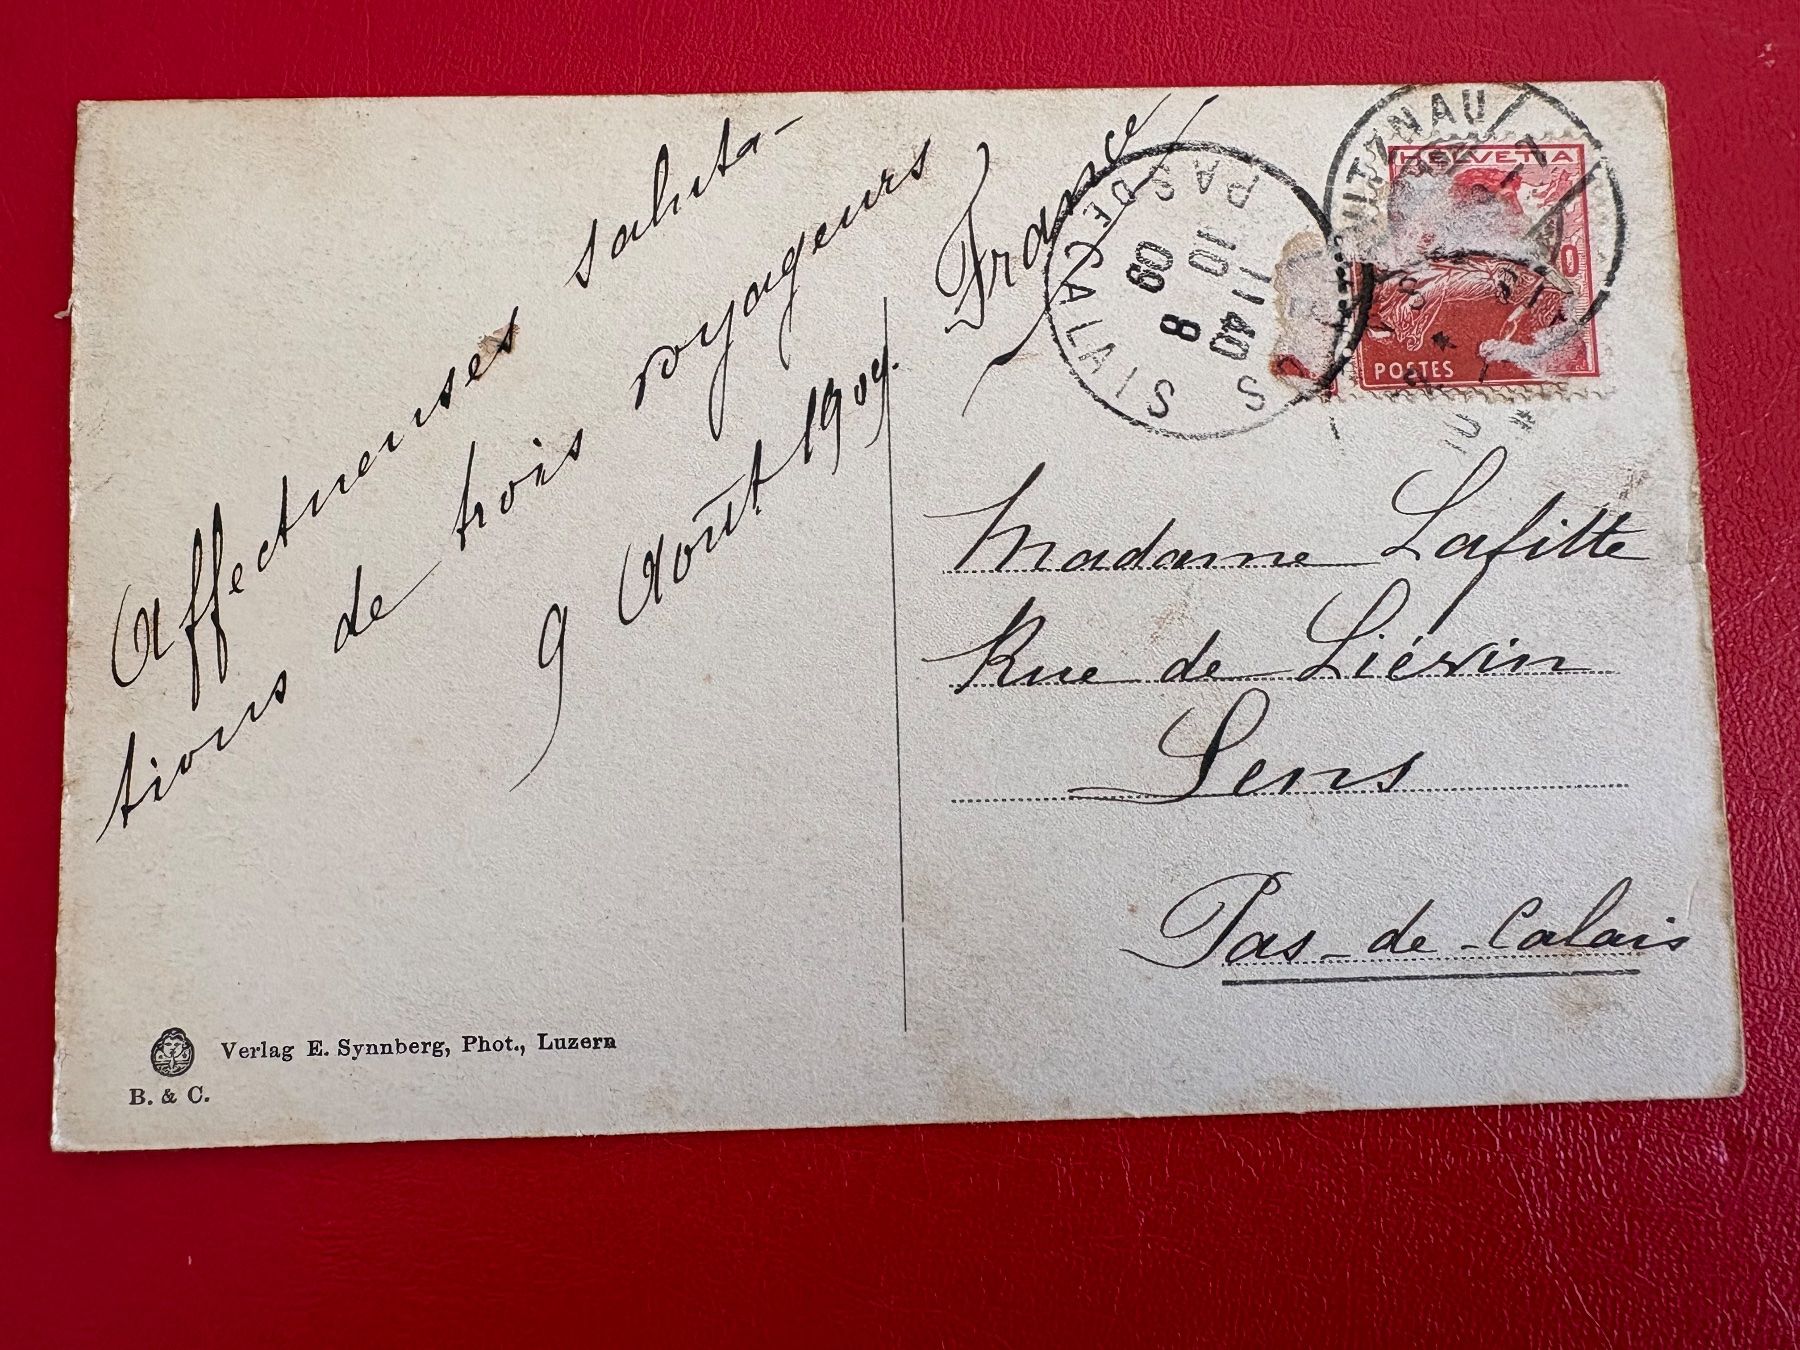 Affectueuses saluta-
tions de trois voyageurs
9 Août 1909.
France
Madame Lafitte
Rue de Liévin
Lens
Pas-de-Calais
VITZNAU
HELVETIA
POSTES
PAS DE CALAIS
11 40
10
8
09
Verlag E. Synnberg, Phot., Luzern
B. & C.